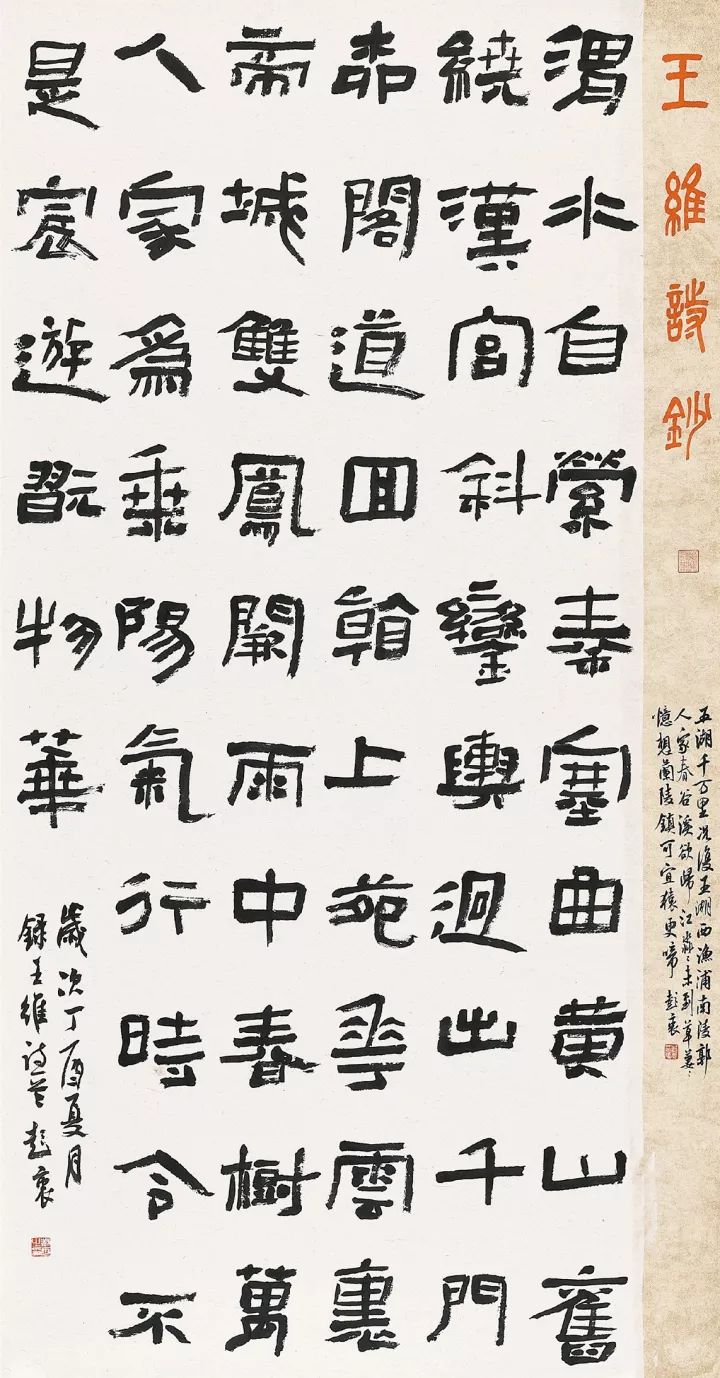 王維詩鈔
五湖千万里况復五湖西漁浦南陵郭
人家春谷溪欲歸江淼〻未到草萋〻
憶想蘭陵鎮可宜猿更啼 彭
渭水自縈秦塞曲黄山舊
繞漢宮斜鑾輿迥出千門
柳閣道回看上苑花雲裏
帝城雙鳳闕雨中春樹萬
人家為乘陽氣行時令不
是宸遊翫物華
歲次丁酉夏月
錄王維诗 彭